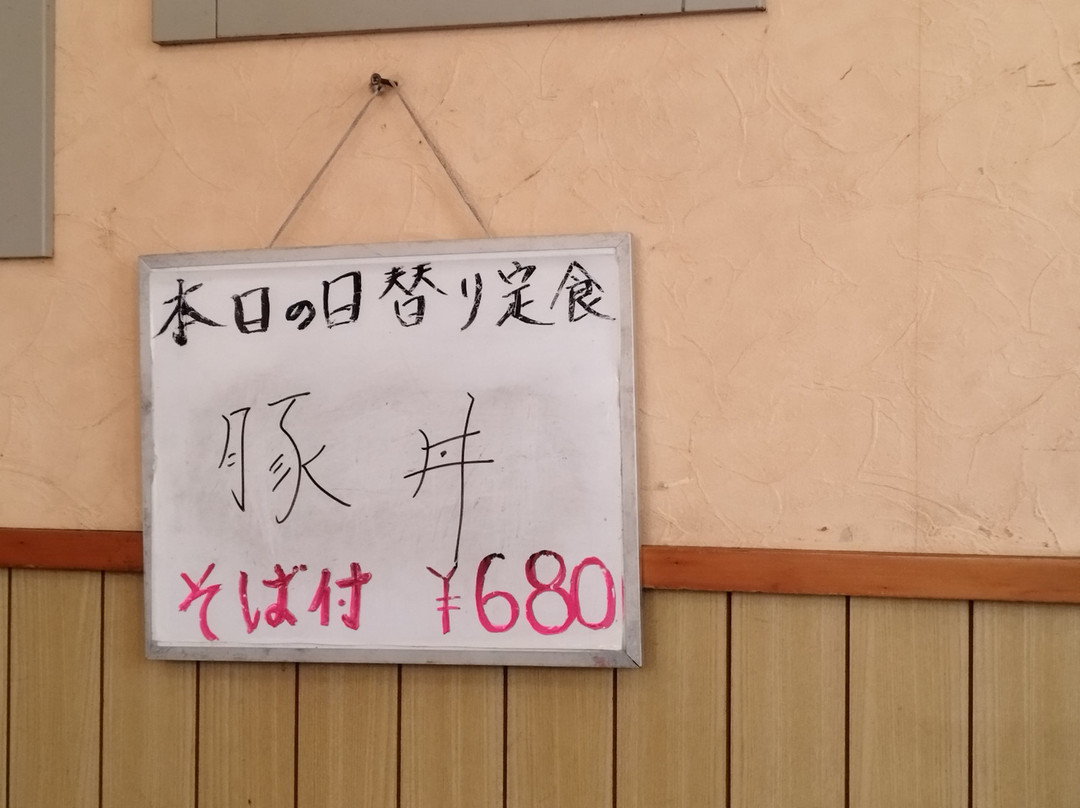 本日の日替り定食
豚丼
そば付 ¥680